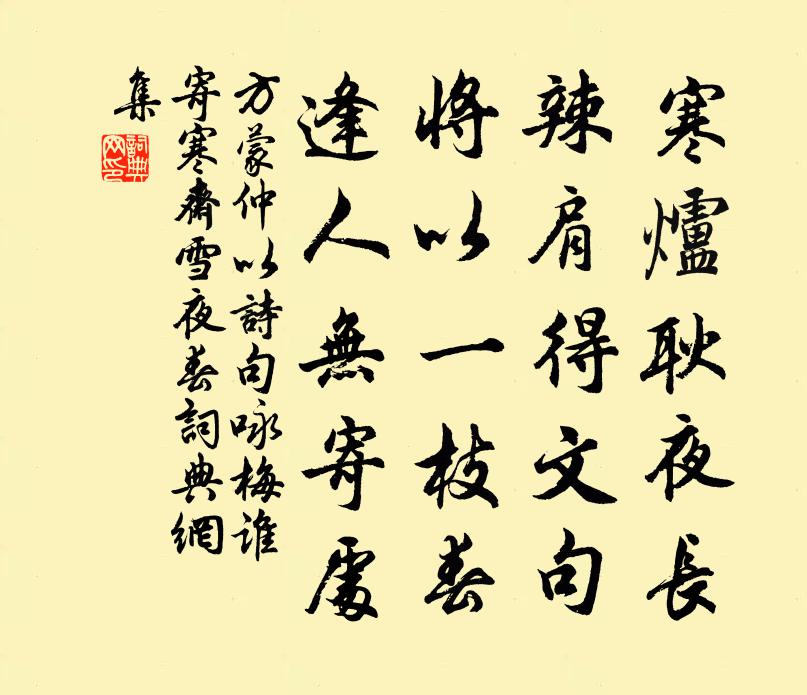 寒爐耿夜長
辣肩得文句
將以一枝春
逢人無寄處
方蒙仲以詩句咏梅誰
寄寒齋雪夜春詞典網
集
詞典網印